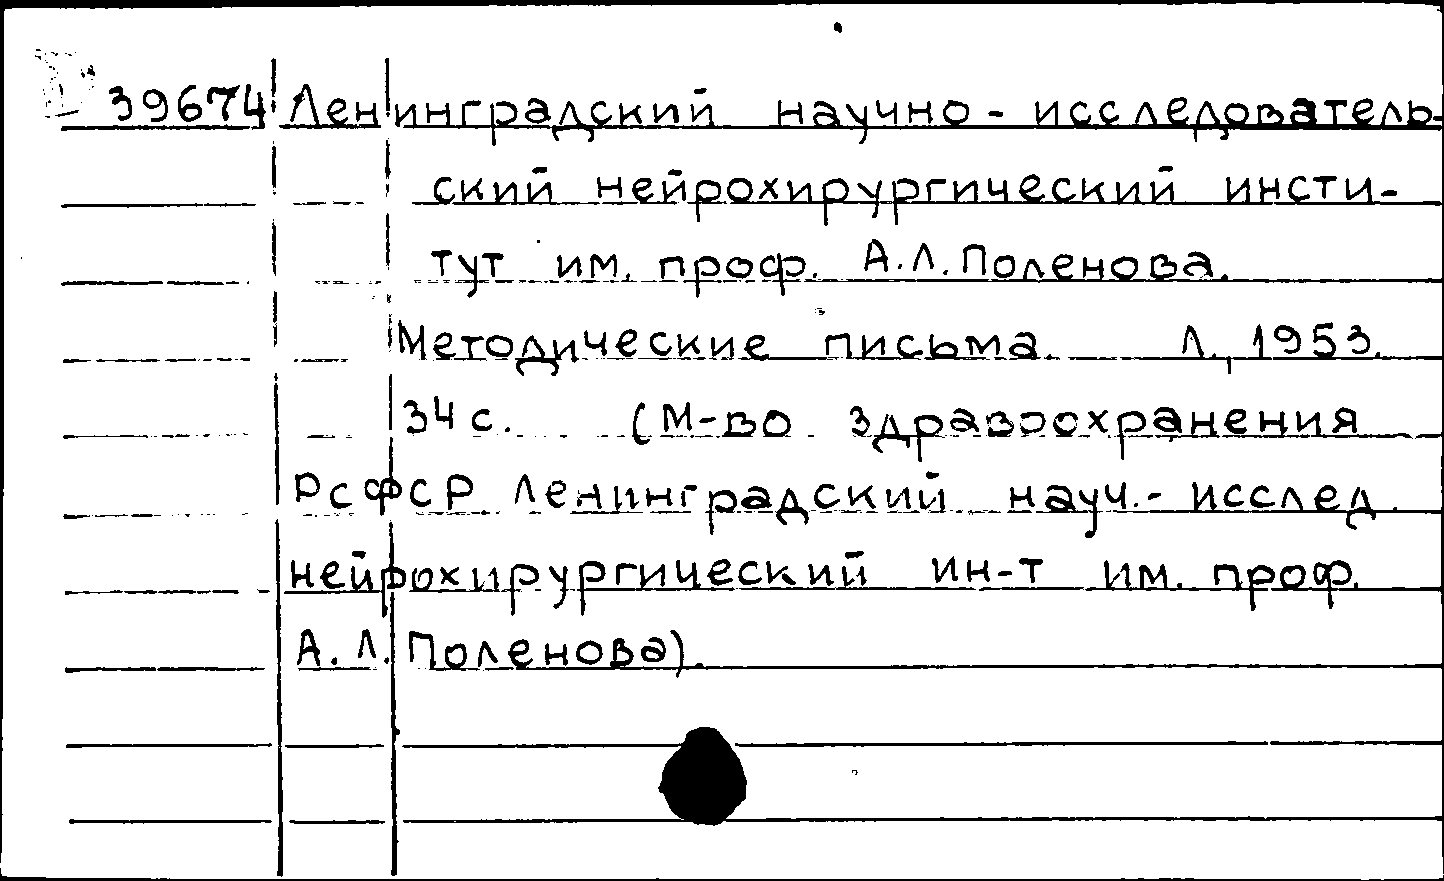 39674 Ленинградский научно-исследователь-
ский нейрохирургический инсти-
тут им. проф. А.Л.Поленова.
Методические письма. Л., 1953.
34 с. (М-во здравоохранения
РСФСР Ленинградский науч.-исслед.
нейрохирургический ин-т им. проф.
А.Л.Поленова).